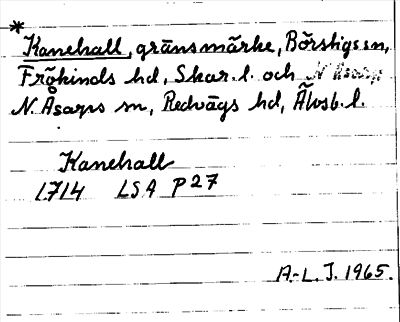 *
Kanehall, gränsmärke, Börstigs sn,
Frökinds hd, Skar. l. och
N. Åsarps sn, Redvägs hd, Älvsb. l.
Kanehall
1714 LSA P27
A.-L. J. 1965.